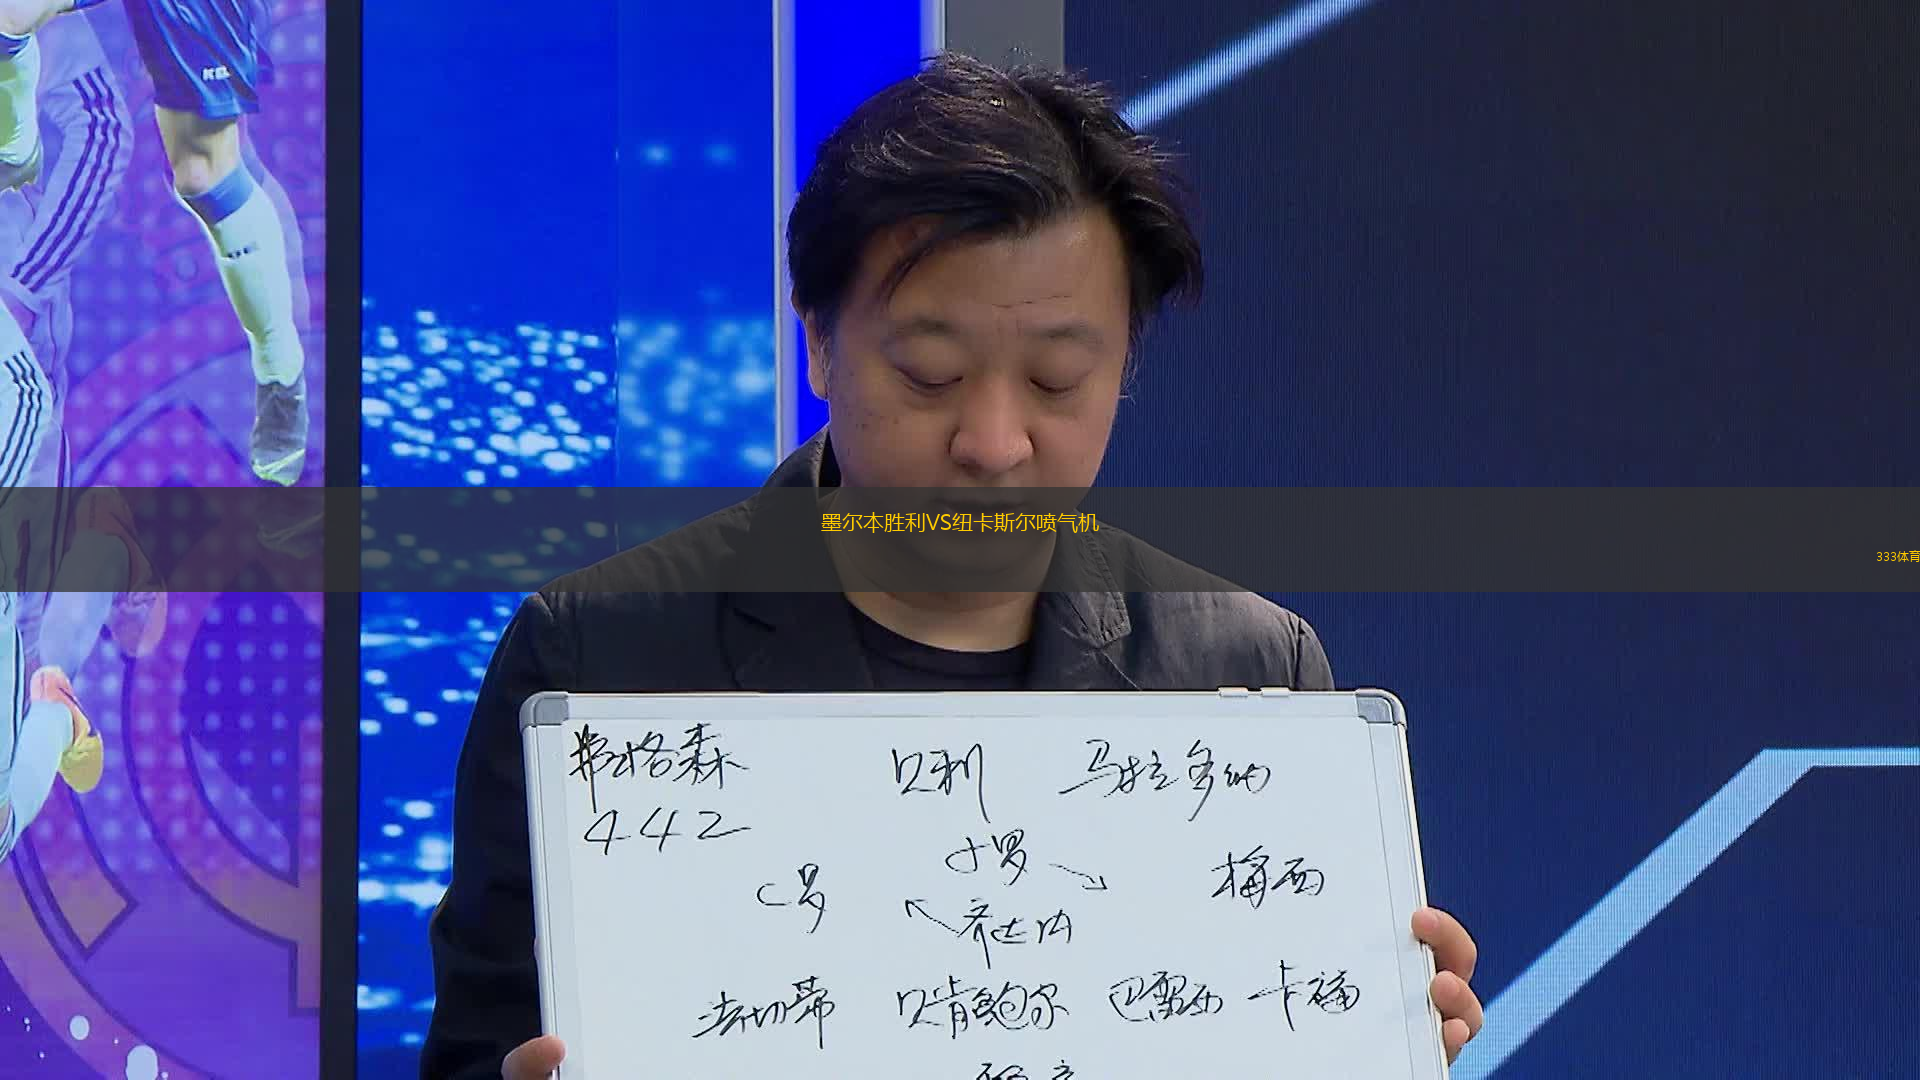 墨尔本胜利VS纽卡斯尔喷气机
333体育
弗格森 贝利 马拉多纳
442
小罗
C罗 梅西
齐达内
法切蒂 贝肯鲍尔 巴雷西 卡福